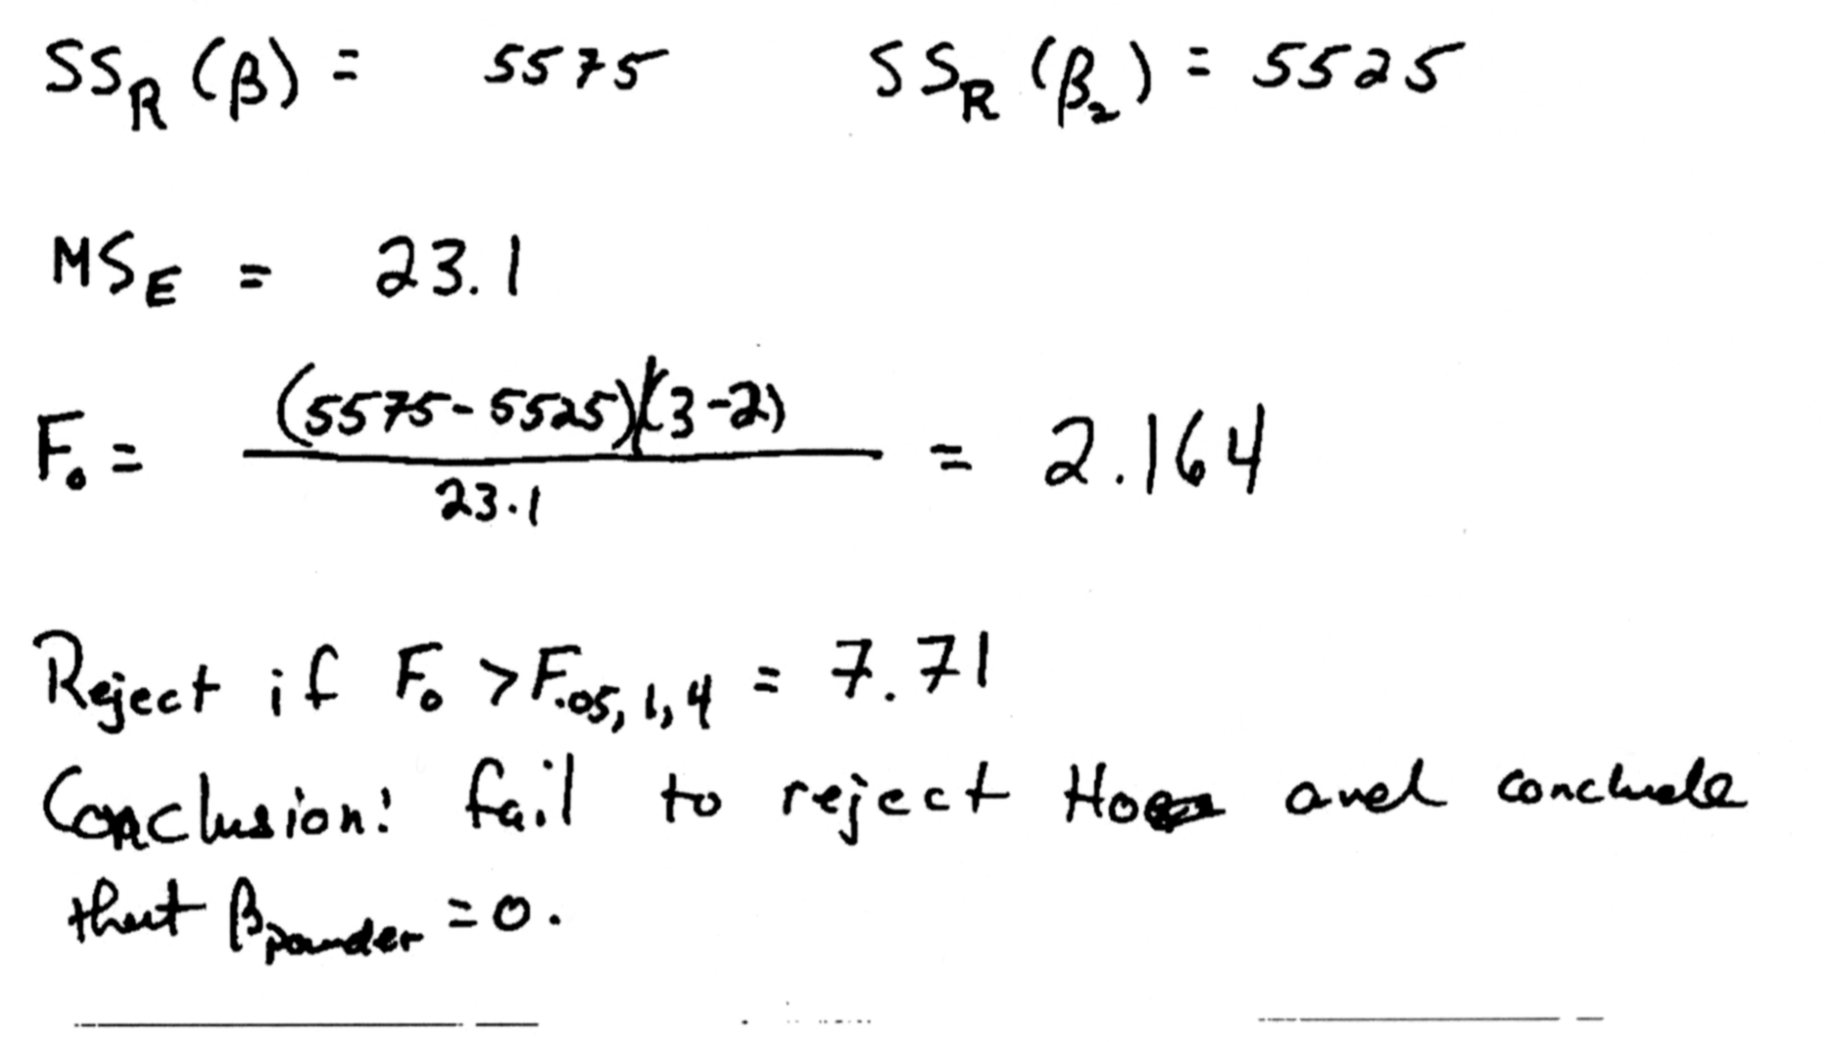 SS_R (β) = 5575 SS_R (β_2) = 5525
MS_E = 23.1
F_0 = (5575-5525)/(3-2) / 23.1 = 2.164
Reject if F_0 > F_.05, 1, 4 = 7.71
Conclusion: fail to reject Ho and conclude
that β_powder = 0.